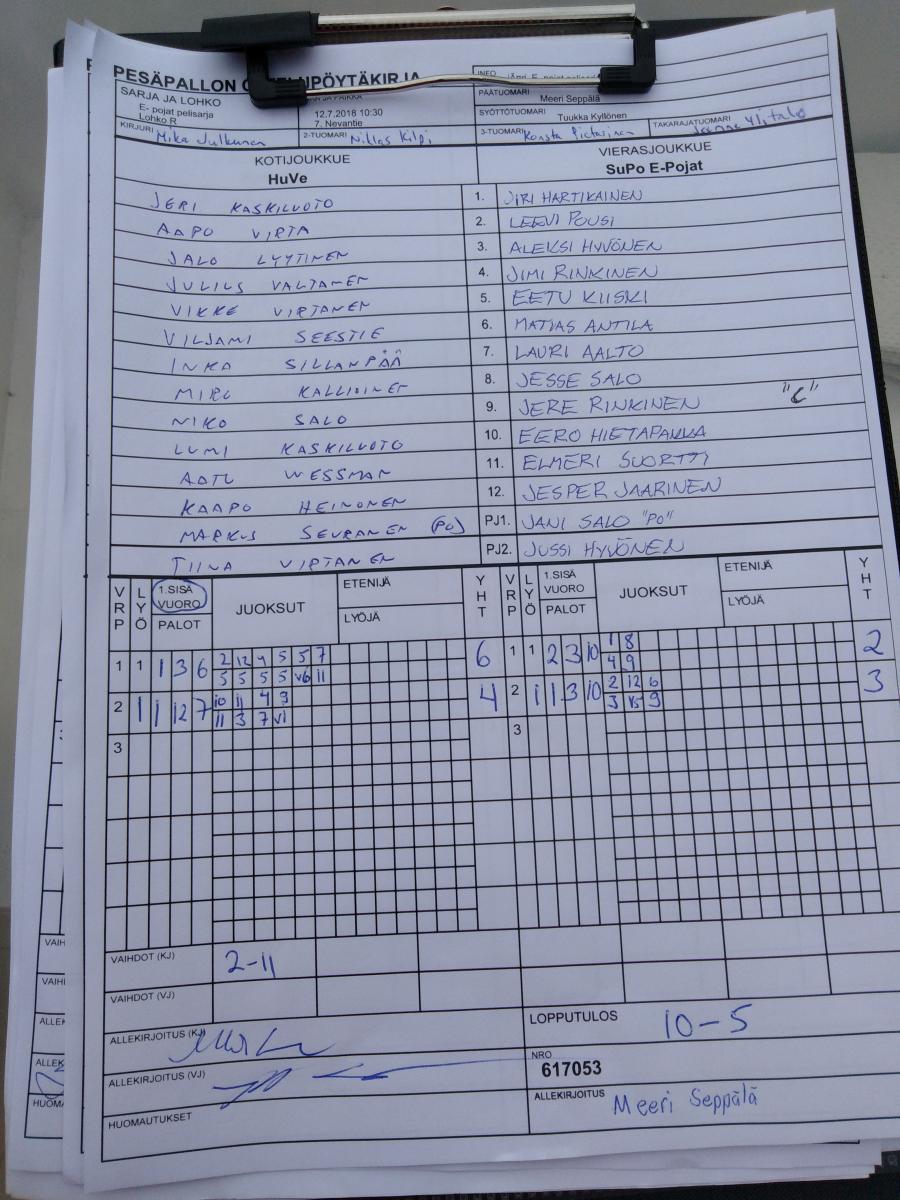 PESÄPALLON
SARJA JA LOHKO
E- pojat pelisarja
Lohko R
12.7.2018 10:30
7. Nevantie
INFO
PÄÄTUOMARI
Meeri Seppälä
SYÖTTÖTUOMARI
Tuukka Kyllönen
KIRJURI Mika Julkunen
2-TUOMARI Niklas Kilpi
3-TUOMARI Konsta Pietarinen
TAKARAJATUOMARI
KOTIJOUKKUE
HuVe
VIERASJOUKKUE
SuPo E-Pojat
JERI KASKILUOTO 1. JIRI HARTIKAINEN
AAPO VIRTA 2. LEEVI POUSI
JALO LYYTINEN 3. ALEKSI HYVÖNEN
JULIUS VALTANEN 4. JIMI RINKINEN
VIKKE VIRTANEN 5. EETU KIISKI
VILJAMI SEESTIE 6. MATIAS ANTILA
INKA SILLANPÄÄ 7. LAURI AALTO
MIRO KALLIOINEN 8. JESSE SALO
NIKO SALO 9. JERE RINKINEN "C"
LUMI KASKILUOTO 10. EERO HIETAPAKKA
AATU WESSMAN 11. ELMERI SUORTTI
KAAPO HEINONEN 12. JESPER JAARINEN
MARKUS SEURANEN (PJ) PJ1. JANI SALO "PO"
TIINA VIRTANEN PJ2. JUSSI HYVÖNEN
VRP LYÖ 1.SISÄ VUORO PALOT JUOKSUT ETENIJÄ LYÖJÄ YHT VRP LYÖ 1.SISÄ VUORO PALOT JUOKSUT ETENIJÄ LYÖJÄ YHT
1 1 1 3 6 2 12 4 5 5 7 6 1 1 2 3 10 1 8 2
5 5 5 5 V6 11 4 9
2 1 1 12 7 10 11 4 9 4 2 1 1 3 10 2 12 6 3
11 3 7 V1 3 9
3 3
VAIHDOT (KJ) 2-11
VAIHDOT (VJ)
ALLEKIRJOITUS (KJ)
LOPPUTULOS 10-5
ALLEKIRJOITUS (VJ)
NRO
617053
HUOMAUTUKSET
ALLEKIRJOITUS Meeri Seppälä